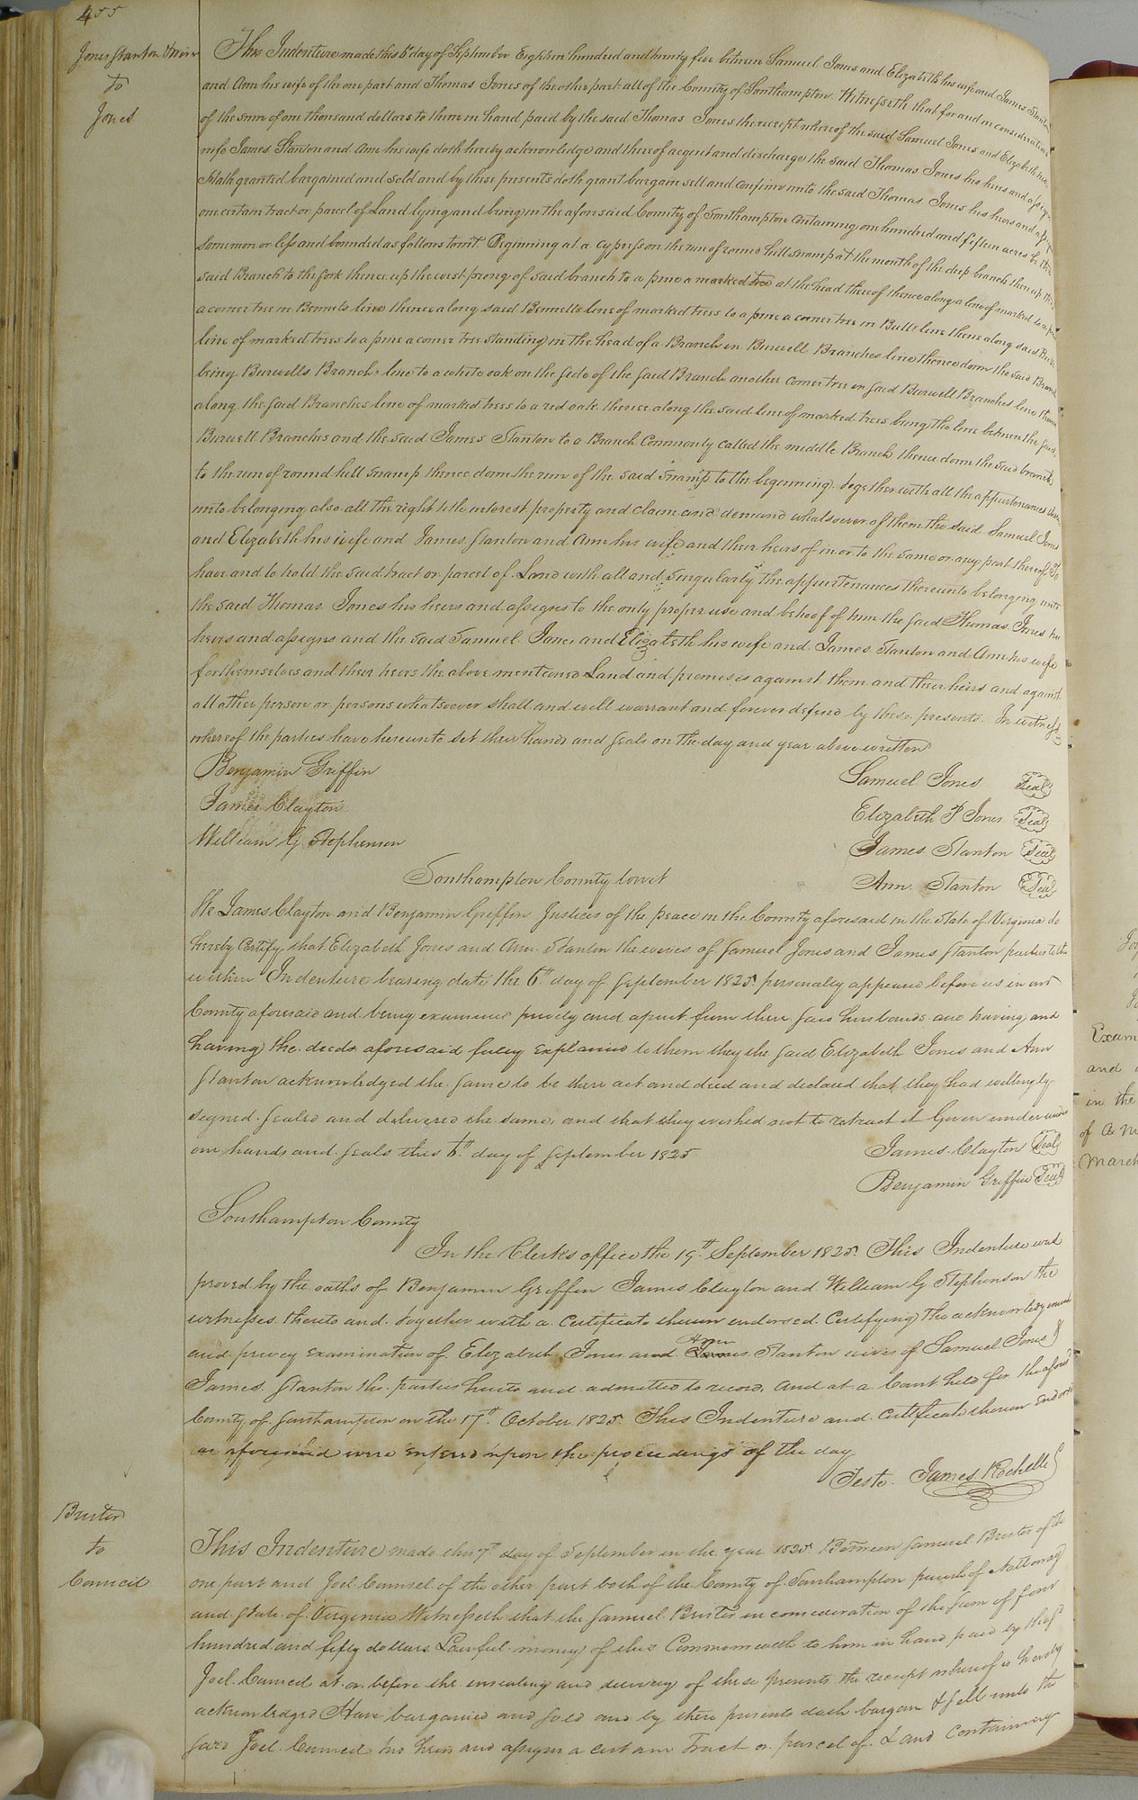 455
Jones Stanton & wives
to
Jones
This Indenture made this 6th day of September Eighteen hundred and twenty five between Samuel Jones and Elizabeth his wife and James Stanton
and Ann his wife of the one part and Thomas Jones of the other part all of the County of Southampton. Witnesseth that for and in consideration
of the sum of one thousand dollars to them in hand paid by the said Thomas Jones the receipt whereof the said Samuel Jones and Elizabeth his
wife James Stanton and Ann his wife doth hereby acknowledge and thereof acquit and discharge the said Thomas Jones his heirs and assigns
Hath granted bargained and sold and by these presents doth grant bargain sell and confirm unto the said Thomas Jones his heirs and assigns
one certain tract or parcel of Land lying and being in the aforesaid County of Southampton Containing one hundred and fifteen acres be the
same more or less and bounded as follows towit Beginning at a cypress on the run of round hill swamp at the mouth of the deep branch thence up the
said Branch to the fork thence up the west prong of said branch to a pine a marked tree at the head thereof thence along a line of marked to a pine
a corner tree in Bennets line thence along said Bennetts line of marked trees to a pine a corner tree in Butts line thence along said Butts
line of marked trees to a pine a corner tree standing in the head of a Branch in Burwell Branches line thence down the said Branch
being Burwells Branchs line to a white oak on the side of the said Branch another corner tree in said Burwell Branches line thence
along the said Branches line of marked trees to a red oak thence along the said line of marked trees being the line between the said
Burwell Branches and the said James Stanton to a Branch Commonly called the middle Branch thence down the said branch
to the run of round hill swamp thence down the run of the said swamp to the beginning together with all the appurtenances there
unto belonging also all the right title interest property and claim and demand whatsoever of them the said Samuel Jones
and Elizabeth his wife and James Stanton and Ann his wife and their heirs of in or to the same or any part thereof To
have and to hold the said tract or parcel of Land with all and singularly the appurtenances thereunto belonging unto
the said Thomas Jones his heirs and assigns to the only proper use and behoof of him the said Thomas Jones his
heirs and assigns and the said Samuel Jones and Elizabeth his wife and James Stanton and Ann his wife
for themselves and their heirs the above mentioned Land and premises against them and their heirs and against
all other person or persons whatsoever shall and will warrant and forever defend by these presents. In witness
whereof the parties have hereunto set their hands and seals on the day and year above written
Benjamin Griffin
Samuel Jones Seal
James Clayton
Elizabeth P Jones Seal
William G Stephenson
James Stanton Seal
Ann Stanton Seal
Southampton County towit
We James Clayton and Benjamin Griffin Justices of the peace in the County aforesaid in the State of Virginia do
hereby Certify that Elizabeth Jones and Ann Stanton the wives of Samuel Jones and James Stanton parties to the
within Indenture bearing date the 6th day of September 1825 personally appeared before us in our
County aforesaid and being examined privily and apart from their said husbands and having and
having the deeds aforesaid fully explained to them they the said Elizabeth Jones and Ann
Stanton acknowledged the same to be their act and deed and declared that they had willingly
signed sealed and delivered the same, and that they wished not to retract it Given under
our hands and seals this 6th day of September 1825
James Clayton Seal
Benjamin Griffin Seal
Southampton County
In the Clerks office the 19th September 1825 This Indenture was
proved by the oaths of Benjamin Griffin James Clayton and William G Stephenson the
witnesses thereto and together with a certificate thereon endorsed Certifying the acknowledgement
and privey examination of Elizabeth Jones and Ann Stanton wives of Samuel Jones &
James Stanton the parties hereto and admitted to record, And at a Court held for the aforesd
County of Southampton on the 17th October 1825 This Indenture and certificate thereon endorsed
as aforesaid were entered upon the proceedings of the day
Teste. James Rochelle
Brister
to
Council
This Indenture made this 7th day of September in the year 1825 Between Samuel Brister of the
one part and Joel Counsel of the other part both of the County of Southampton parish of Nottoway
and State of Virginia Witnesseth that the Samuel Brister in consideration of the sum of four
hundred and fifty dollars Lawful money of this Commonwealth to him in hand paid by the sd
Joel Council at or before the ensealing and delivery of these presents the receipt whereof is hereby
acknowledged Have bargained and sold and by these presents doth bargain & sell unto the
said Joel Council his heirs and assigns a certain Tract or parcel of Land containing
Exam
and
in the
of
March